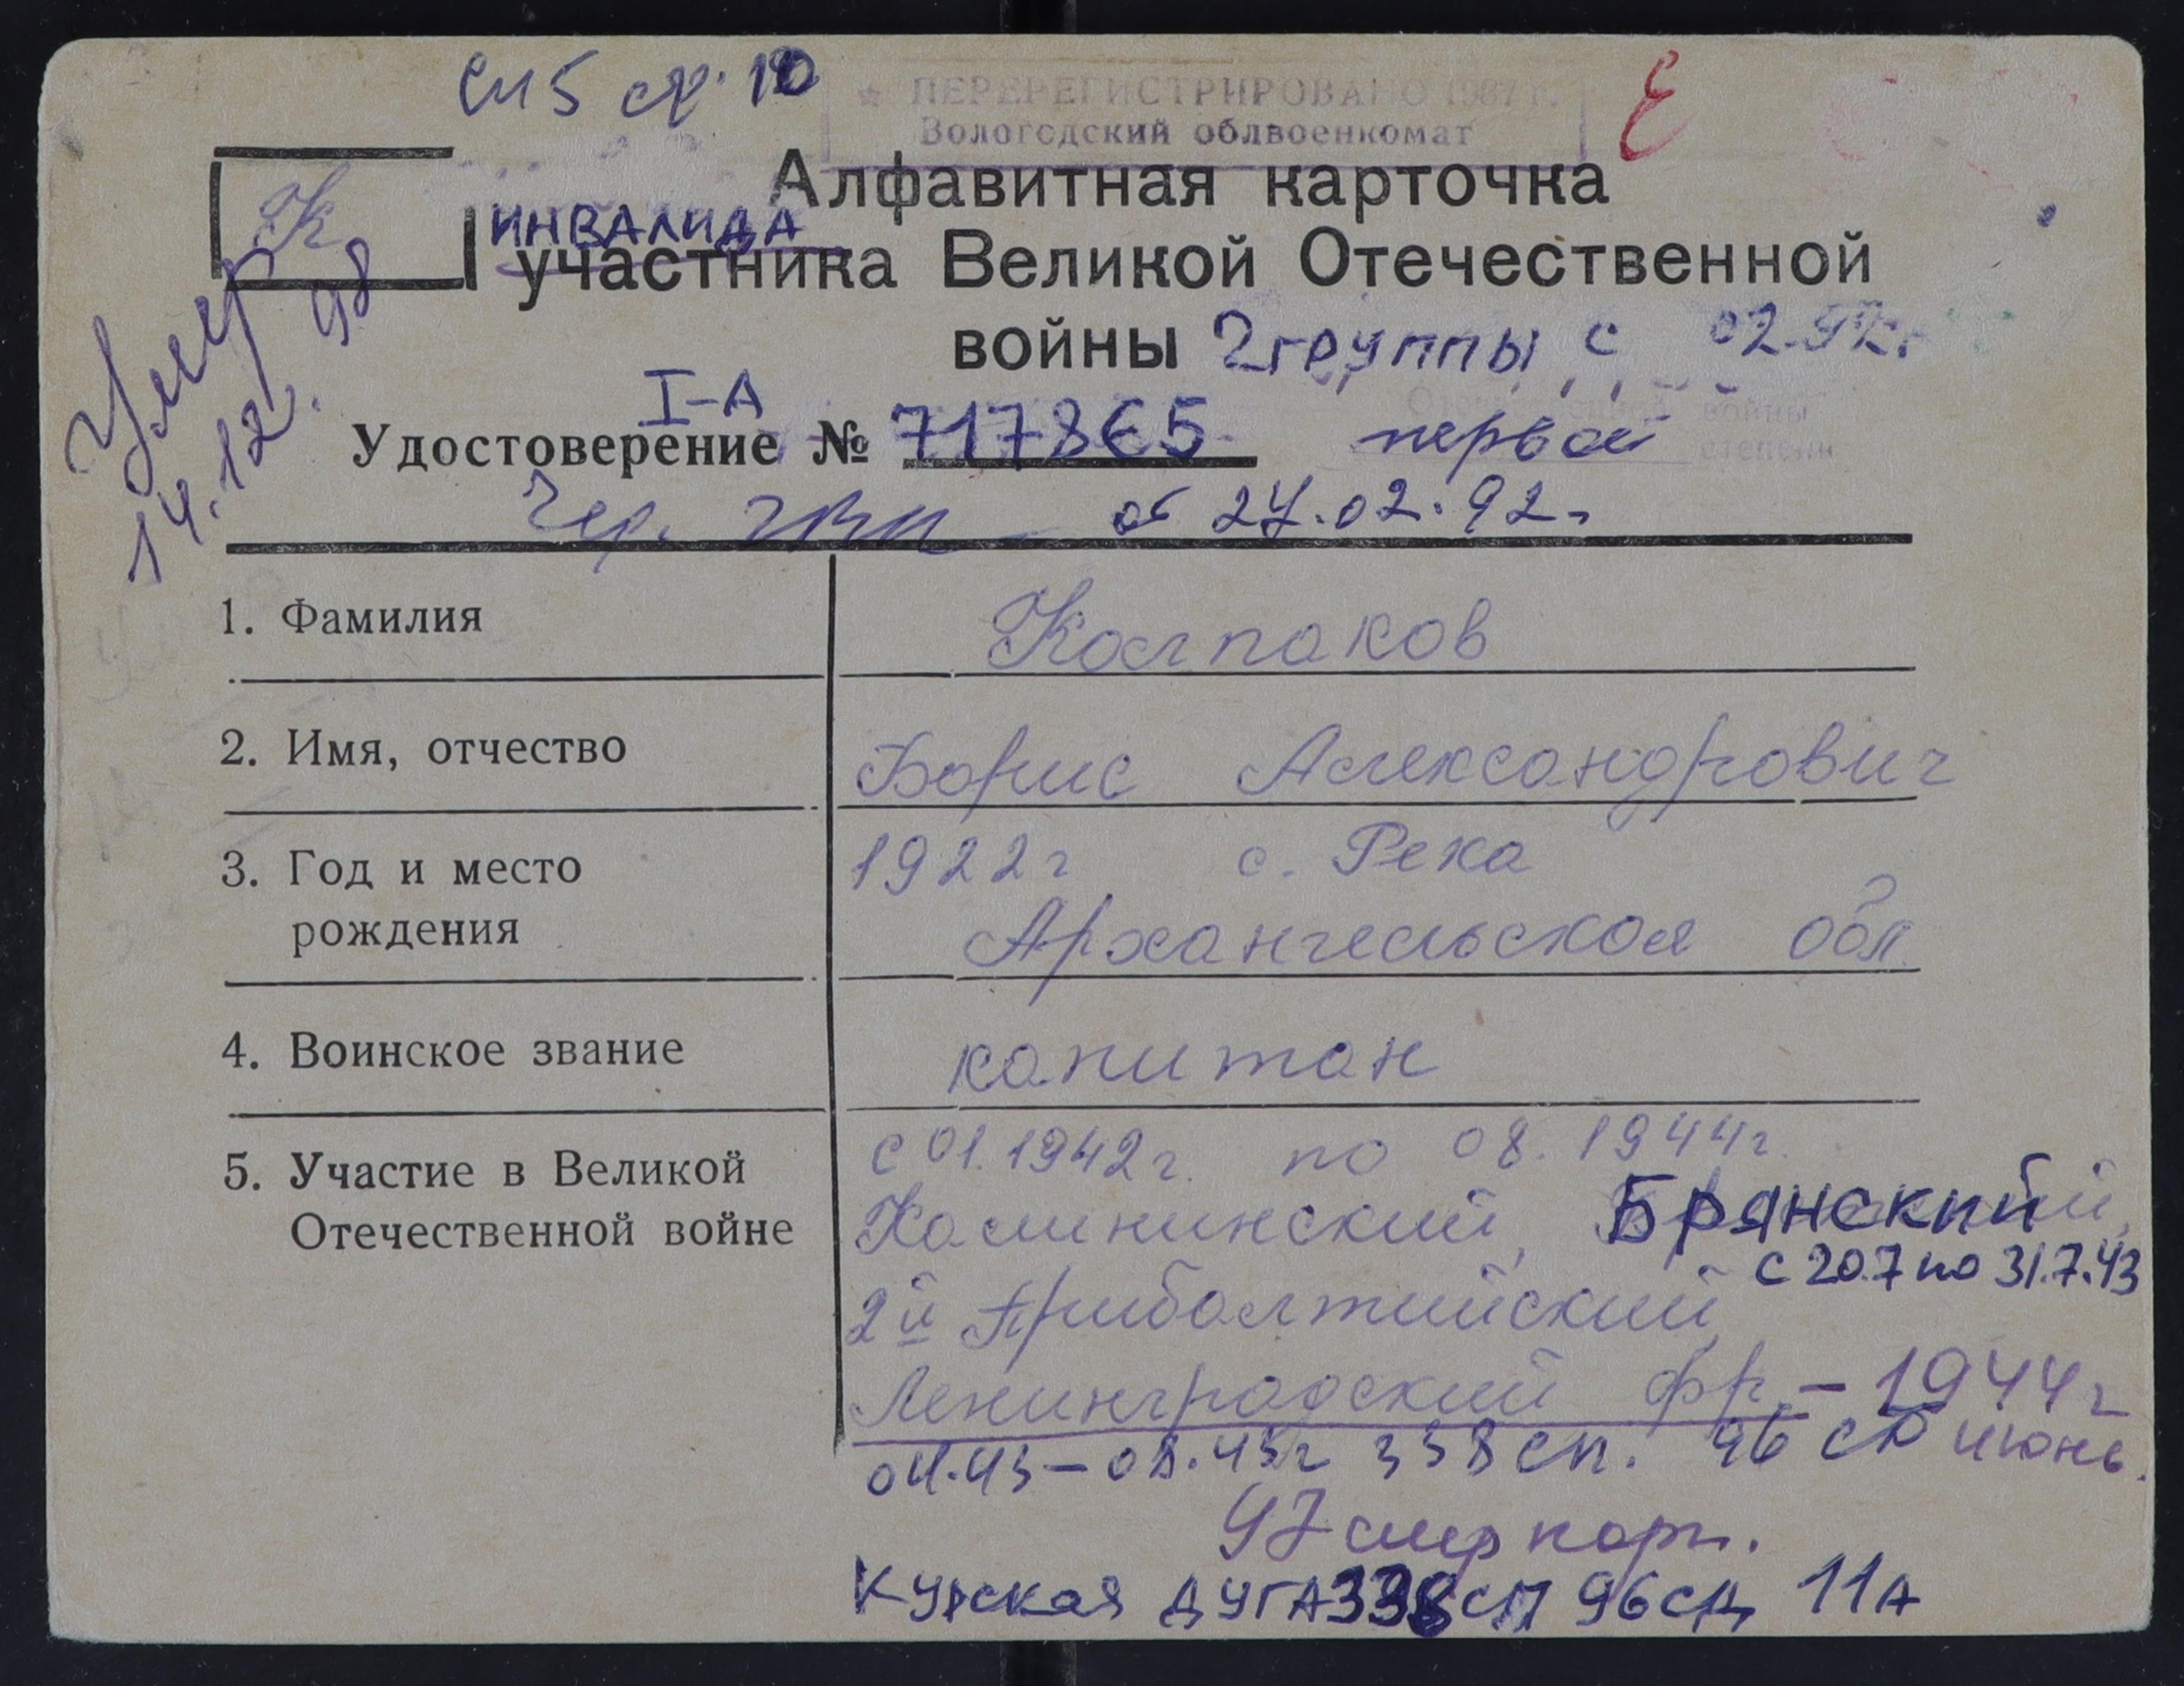 № 10
ПЕРЕРЕГИСТРИРОВАНО 1987 г.
Вологодский облвоенкомат
Е
К
Алфавитная карточка
ИНВАЛИДА
участника Великой Отечественной
войны 2 группы с 02.92 г.
Умер
14.12.98
I-А
Удостоверение № 717865
Отечественной войны
первой степени
от 27.02.92 г.
1. Фамилия Колпаков
2. Имя, отчество Борис Александрович
3. Год и место рождения 1922 г с. Река
Архангельской обл.
4. Воинское звание капитан
5. Участие в Великой Отечественной войне с 01.1942 г. по 08.1944 г.
Калининский, Брянский
с 20.7 по 31.7.43
2й Прибалтийский,
Ленинградский фр. – 1944 г
04.43 – 08.43 г 338 сп. 96 сд июнь.
97 стр корп.
Курская ДУГА 338 СП 96 сд 11А